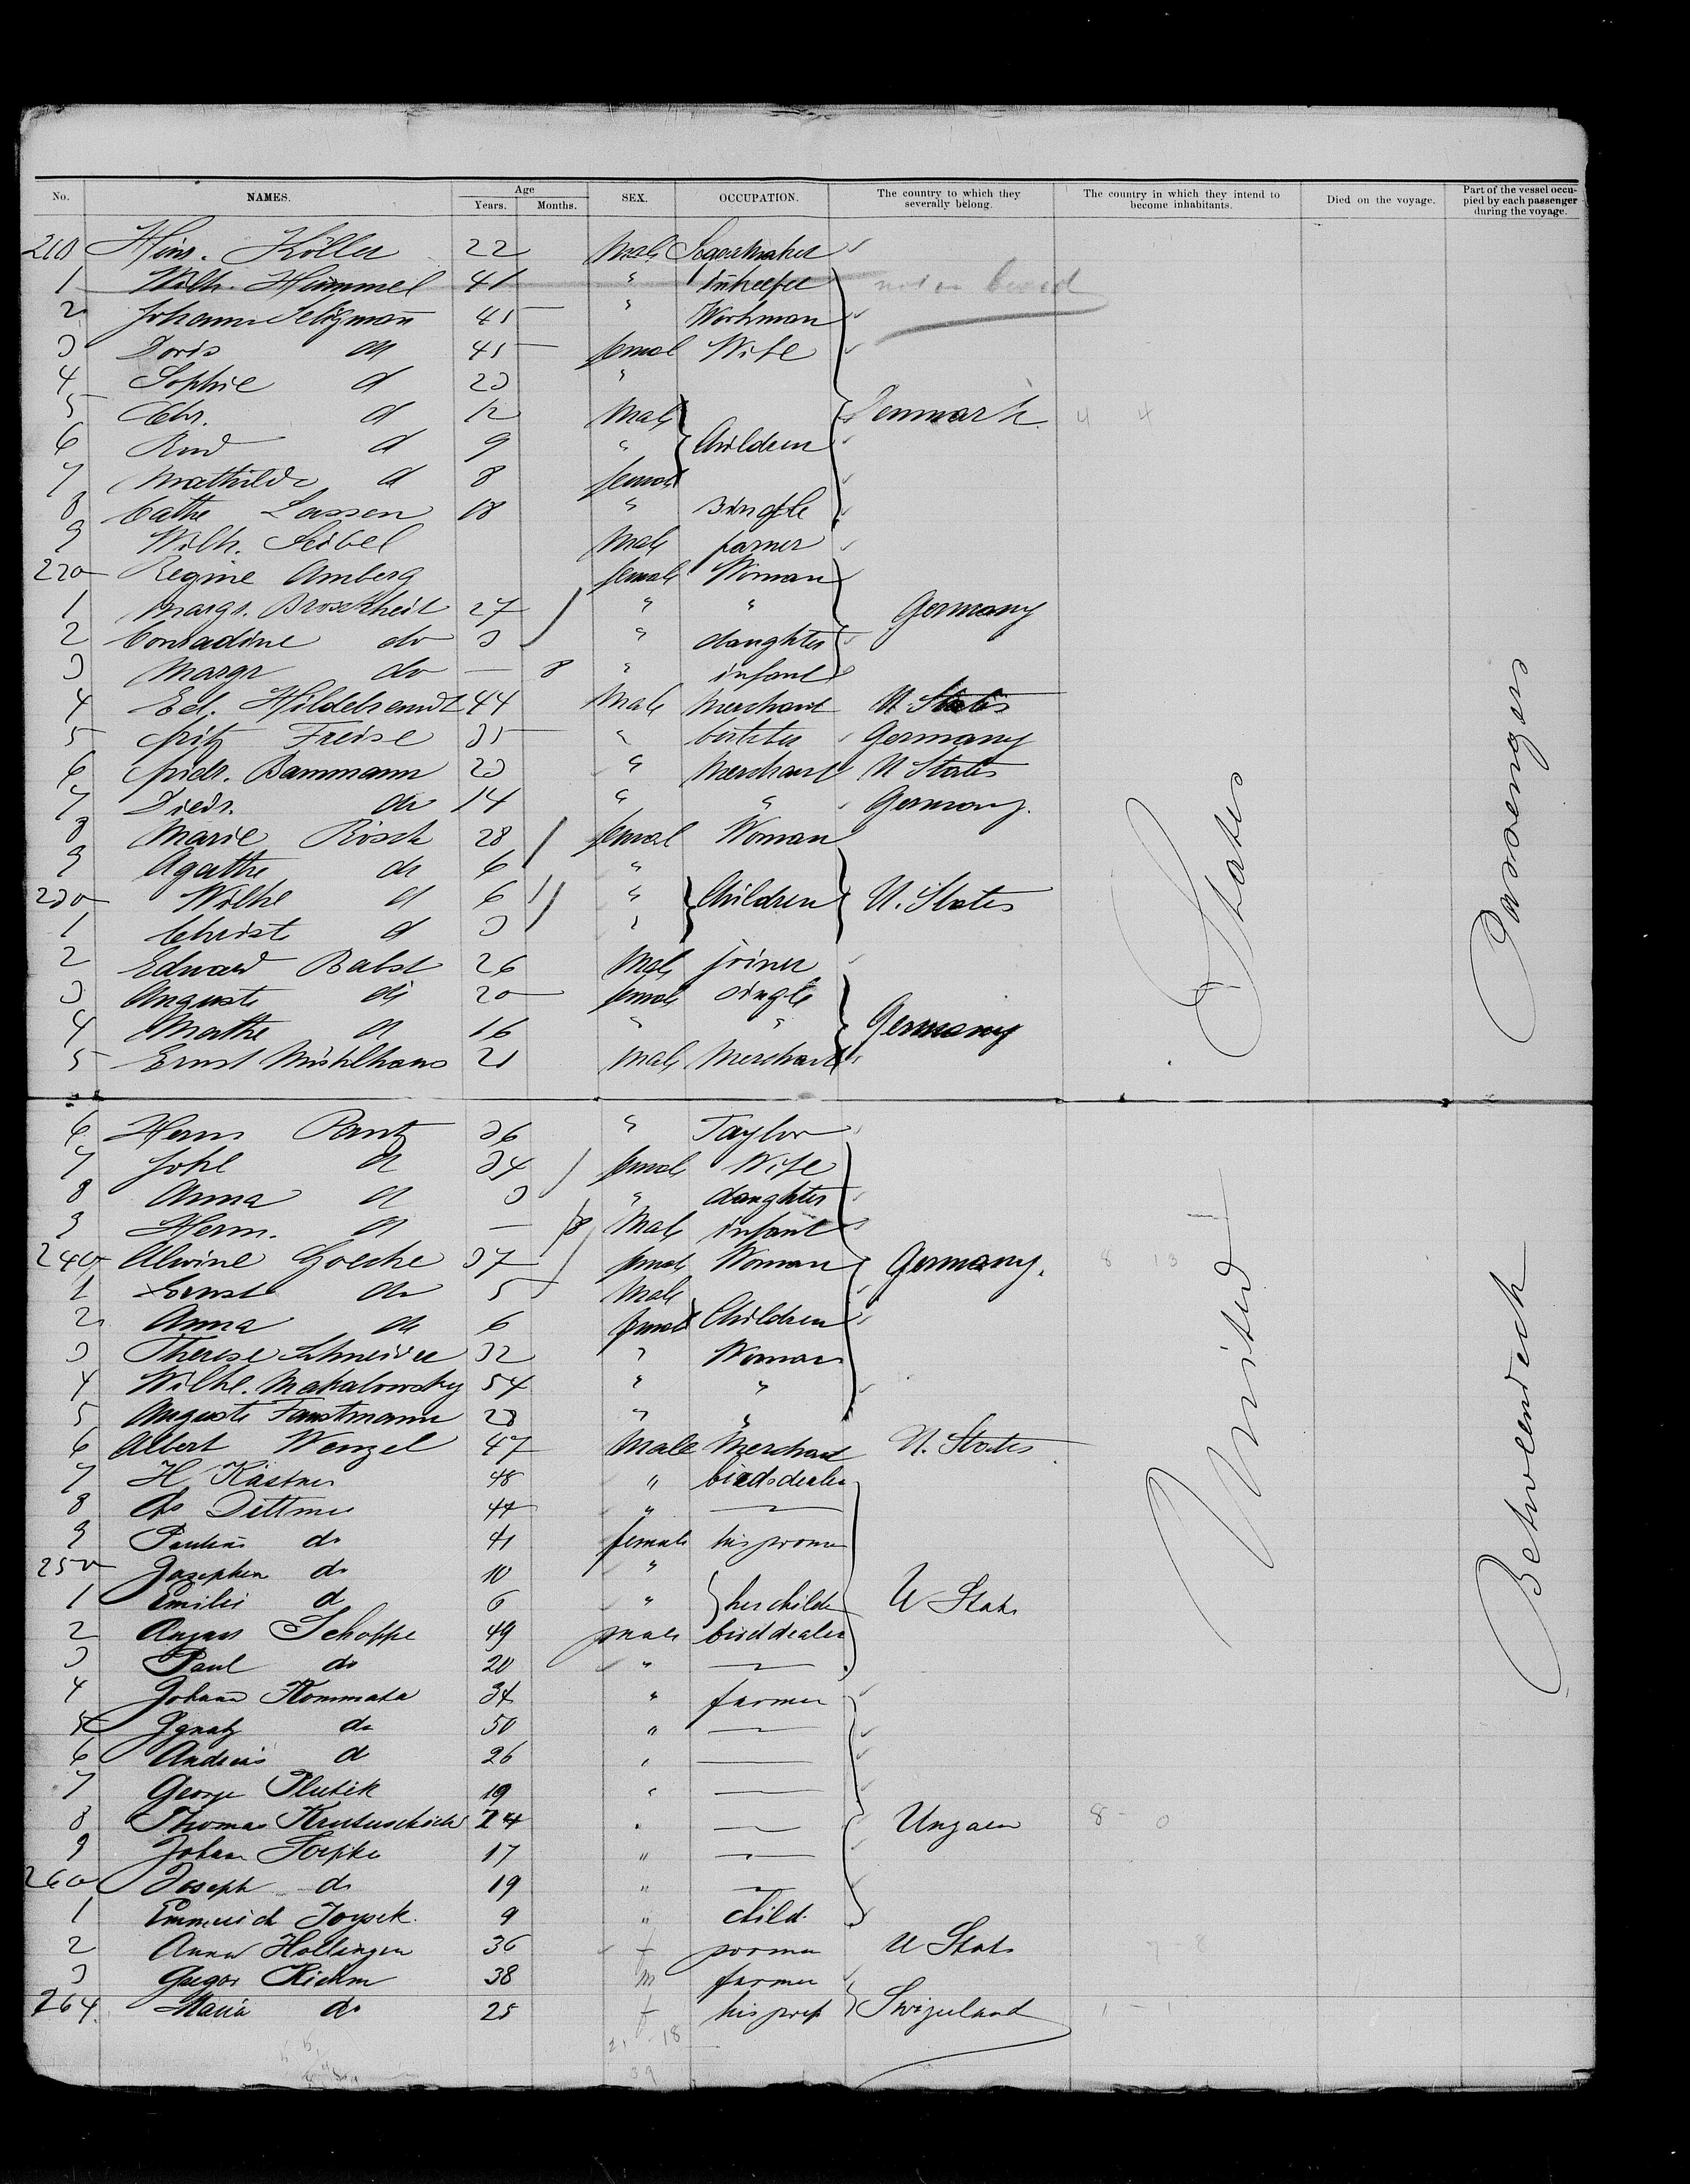 No. NAMES. Age Years. Months. SEX. OCCUPATION. The country to which they severally belong. The country in which they intend to become inhabitants. Died on the voyage. Part of the vessel occupied by each passenger during the voyage.
210 Hinr. Köller 22 Male
1 Wilh. Hümmel 41 " not on board
2 Johann 45 " Workman
3 Doris d 45 femal Wife
4 Sophie d 23 "
5 Chr. d 12 Male Denmark 4 4
6 d 9 " Children
7 Mathilde d 8 femal
8 Cathe Lassen 18 " Single
9 Wilh. Seibel Male farmer
220 Regine Amberg female Woman
1 Margr. 27 " " Germany
2 Conradine do 3 " daughter
3 Margr do — 8 " infant
4 Ed. Hildebrandt 44 Male Merchant U. States
5 Fritz Freise 35 " Germany
6 Friedr. Bammann 23 " Merchant U States
7 Diedr. do 14 " " Germany.
8 Marie Rösch 28 femal Woman
9 Agathe do 6 "
230 Wilhe d 6 " Children U. States
1 Christ d 3 "
2 Eduard Babst 26 Male joiner
3 Auguste do 20 female single
4 Mathe d 16 " " Germany
5 Ernst Mühlhaus 21 Male Merchant
6 Herm Pantz 36 " Taylor
7 Johe d 34 female Wife
8 Anna d 3 " daughter
9 Herm. d — 8 Male infant
240 Alwine Goecke 37 female Woman Germany. 8 13
1 Ernst do 5 Male
2 Anna do 6 female Children
3 Therese Schneider 32 " Woman
4 Wilhe. Makalowsky 54 " "
5 Auguste Faustmann 28 " "
6 Albert Wenzel 47 Male Merchant U. States
7 H Kästner 48 " birdsdealer
8 Dittmer 44 " —
9 do 41 female his woman
250 Josephen do 10 "
1 Emilie d 6 " her child U Stats
2 August Schoppe 49 male birddealer
3 Paul do 20 " —
4 Johann Kommata 34 " farmer
5 Ignatz do 50 " —
6 Andreas d 26 " —
7 George Plutik 19 " —
8 Thomas 24 " — Ungarn 8 - 0
9 Johan 17 " —
260 Joseph do 19 " —
1 Emmerich 9 " child.
2 Anna Hollinger 36 f woman U Stats 7 - 8
3 Gregor Riehm 38 m farmer
264. Maria do 25 f his Swizerland 1 - 1
21 - 18
39
United States
Betweendeck Passengers